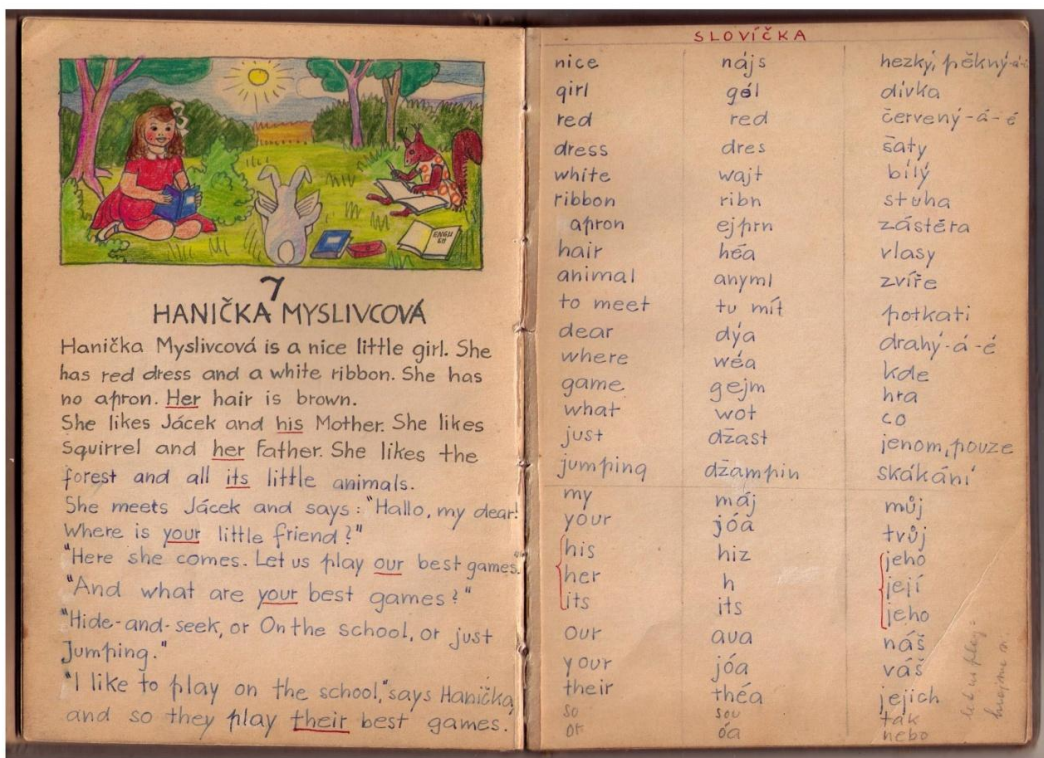 ENGLI
SH
7
HANIČKA MYSLIVCOVÁ
Hanička Myslivcová is a nice little girl. She
has red dress and a white ribbon. She has
no apron. Her hair is brown.
She likes Jácek and his Mother. She likes
Squirrel and her Father. She likes the
forest and all its little animals.
She meets Jácek and says: "Hallo, my dear!
Where is your little friend?"
"Here she comes. Let us play our best games."
"And what are your best games?"
"Hide-and-seek, or On the school, or just
Jumping."
"I like to play on the school," says Hanička,
and so they play their best games.
SLOVÍČKA
nice nájs hezký, pěkný-á-é
girl gél dívka
red red červený-á-é
dress dres šaty
white wajt bílý
ribbon ribn stuha
apron ejprn zástěra
hair héa vlasy
animal anyml zvíře
to meet tu mít potkati
dear dýa drahý-á-é
where wéa kde
game gejm hra
what wot co
just džast jenom, pouze
jumping džampin skákání
my máj můj
your jóa tvůj
his hiz jeho
her h její
its its jeho
our aua náš
your jóa váš
their théa jejich
so sou tak
or óa nebo
let us play =
hrajme si